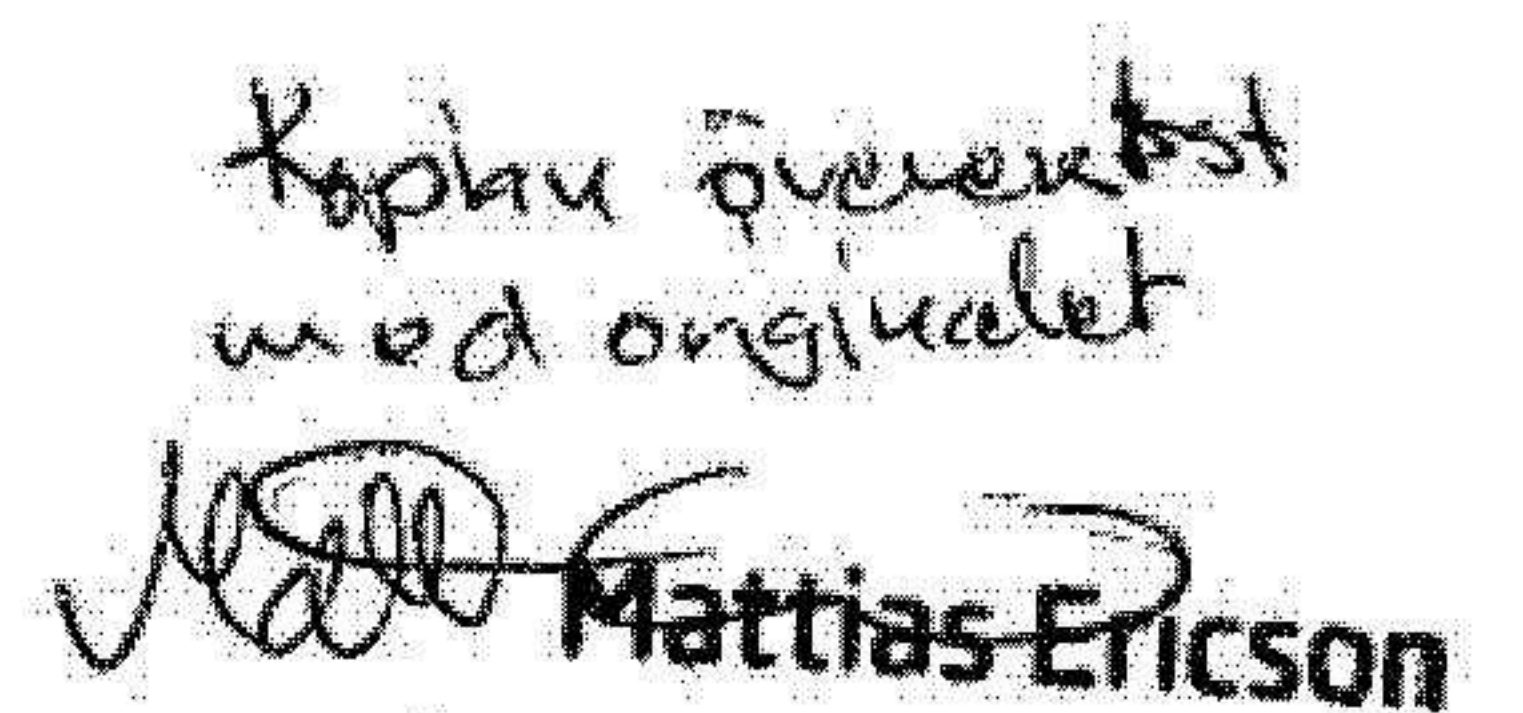 Kopian överens
med orginalet
Mattias Ericson